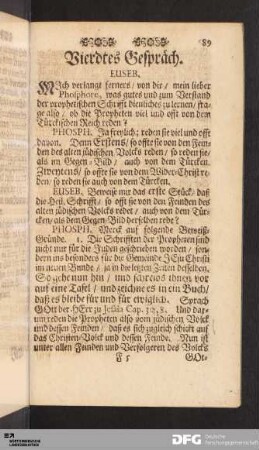 89
Vierdtes Gespräch.
EUSEB.
MIch verlangt ferners / von dir / mein lieber
Phosphore, was gutes und zum Verstand
der prophetischen Schrifft dienliches zu lernen / fra-
ge also / ob die Propheten viel und offt von dem
Türckischen Reich reden?
PHOSPH. Ja freylich; reden sie viel und offt
davon. Denn Erstens / so offte sie von den Fein-
den des alten jüdischen Volcks reden / so reden sie /
als im Gegen-Bild / auch von dem Türcken.
Zweytens / so offte sie von dem Wider-Christ re-
den / so reden sie auch von dem Türcken.
EUSEB. Beweise mir das erste Stück / daß
die Heil. Schrifft / so offt sie von den Feinden des
alten jüdischen Volcks redet / auch von dem Tür-
cken / als dem Gegen-Bild derselben rede?
PHOSPH. Merck auf folgende Beweiß-
Gründe. 1. Die Schrifften der Propheten sind
nicht nur für die Juden geschrieben worden / son-
dern ins besonders für die Gemeinde JEsu Christi
im neuen Bunde / ja in den letzten Zeiten derselben.
So gehe nun hin / und schreibs ihnen vor
auf eine Tafel / und zeichne es in ein Buch /
daß es bleibe für und für ewiglich. Sprach
GOtt der HErr zu Jesaia Cap. 30, 8. Und dar-
um reden die Propheten also vom jüdischen Volck
und dessen Feinden / daß es sich zugleich schickt auf
das Christen-Volck und dessen Feinde. Nun ist
unter allen Feinden und Verfolgeren des Volcks
F 5 GOt-
DFG Deutsche
Forschungsgemeinschaft